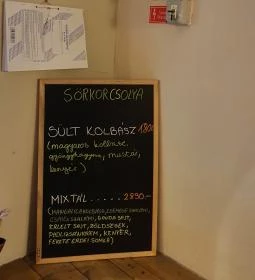 SÖRKORCSOLYA
SÜLT KOLBÁSZ 1800
(magyaros kolbász,
gyöngyhagyma, mustár,
kenyér)
MIXTÁL ..... 2890.-
(MANGALICAKOLBÁSZ, CSEMEGE SZALÁMI,
CSÍPŐS SZALÁMI, GOUDA SAJT,
ÉRLELT SAJT, ZÖLDSÉGEK,
PADLIZSÁNKRÉM, KENYÉR,
FEKETE ERDEI SONKA)